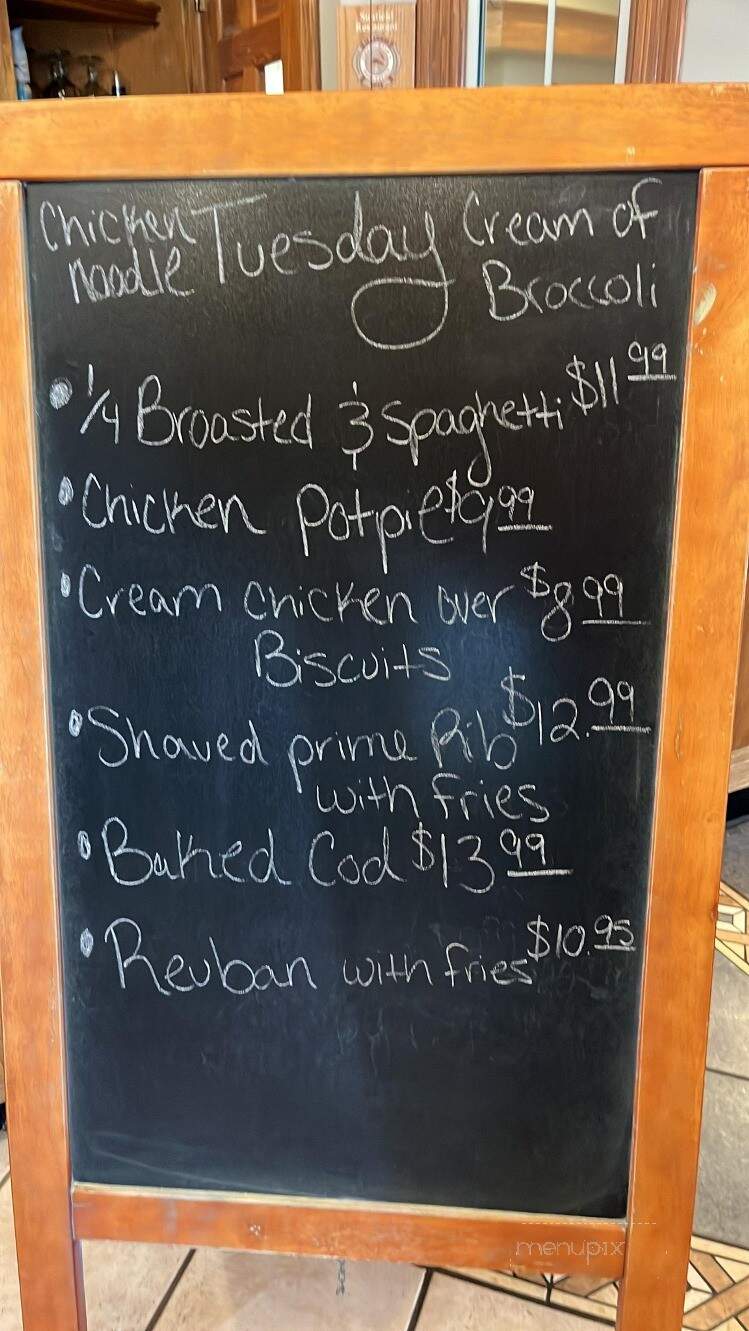 Chicken noodle
Tuesday
Cream of Broccoli
• 1/4 Broasted & Spaghetti $11 99
• Chicken Potpie $9 99
• Cream chicken over $8 99
Biscuits
• Shaved prime Rib $12.99
with fries
• Baked Cod $13 99
• Reuban with fries $10.95
menupix